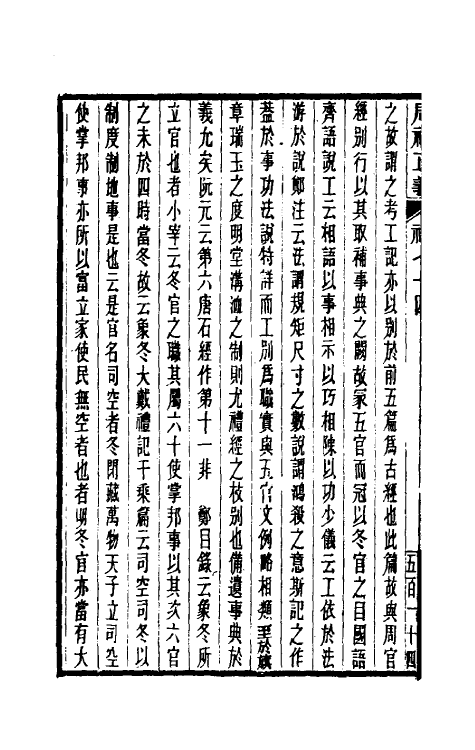 周禮正義　禮七十四　五百一十四
之故謂之考工記亦以別於前五篇爲古經也此篇故與周官
經別行以其取補事典之闕故冡五官而冠以冬官之目國語
齊語說工云相語以事相示以巧相陳以功少儀云工依於法
游於說鄭注云法謂規矩尺寸之數說謂鴻殺之意斯記之作
蓋於事功法說特詳而工別爲職實與五官文例略相類至於旗
章瑞玉之度明堂溝洫之制則尤禮經之枝別也備遺事典於
義允矣阮元云第六唐石經作第十一非　鄭目錄云象冬所
立官也者小宰云冬官之職其屬六十使掌邦事以其次六官
之末於四時當冬故云象冬大戴禮記千乘篇云司空司冬以
制度制地事是也云是官名司空者冬閉藏萬物天子立司空
使掌邦事亦所以富立家使民無空者也者明冬官亦當有大